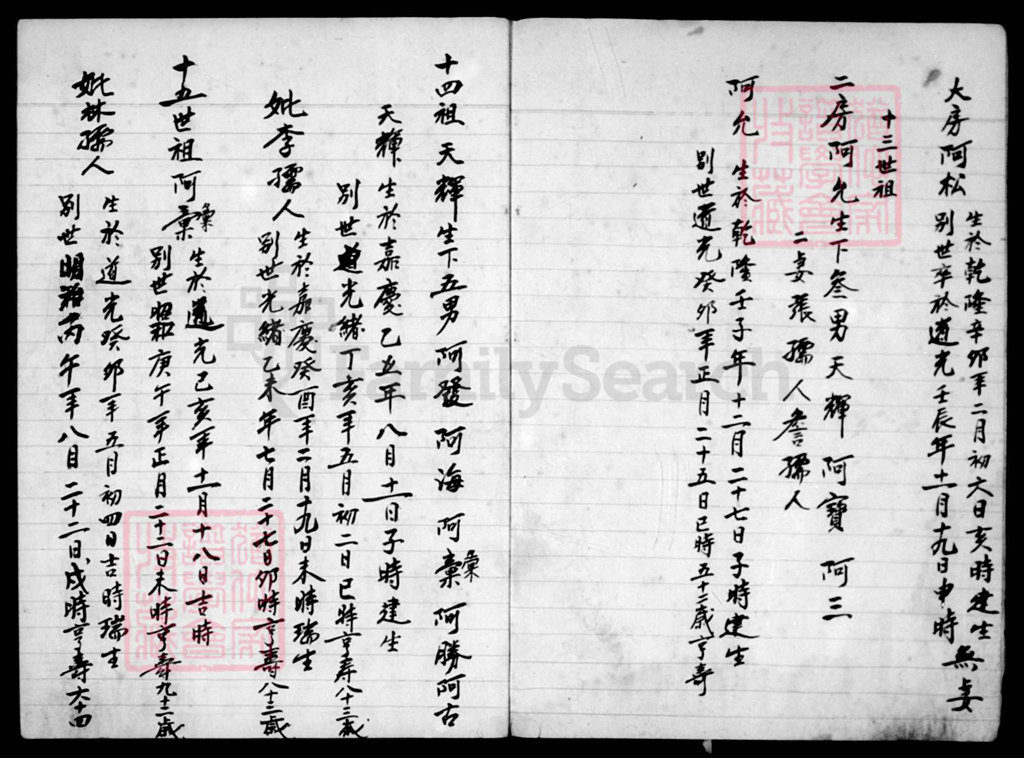 大房阿松 生於乾隆辛卯年二月初六日亥時建生
別世卒於道光壬辰年十一月十九日申時 無妻
十三世祖
二房阿允生下叁男天輝 阿寶 阿三
二妻張孺人詹孺人
阿允 生於乾隆壬子年十二月二十七日子時建生
別世道光癸卯年正月二十五日巳時五十二歲亨壽
十四祖天輝生下五男 阿發 阿海 阿彙 阿勝 阿古
天輝 生於嘉慶乙丑年八月十一日子時建生
別世道光緒丁亥年五月初二日巳時亨寿八十三歲
妣李孺人 生於嘉慶癸酉年二月十九日未時瑞生
別世光緒乙未年七月二十七日卯時亨壽八十三歲
十五世祖阿彙 生於道光己亥年十一月十八日吉時
別世昭和庚午年正月二十二日未時亨壽九十二歲
妣林孺人 生於道光癸卯年五月初四日吉時瑞生
別世明治丙午年八月二十二日戍時亨壽六十四
FamilySearch